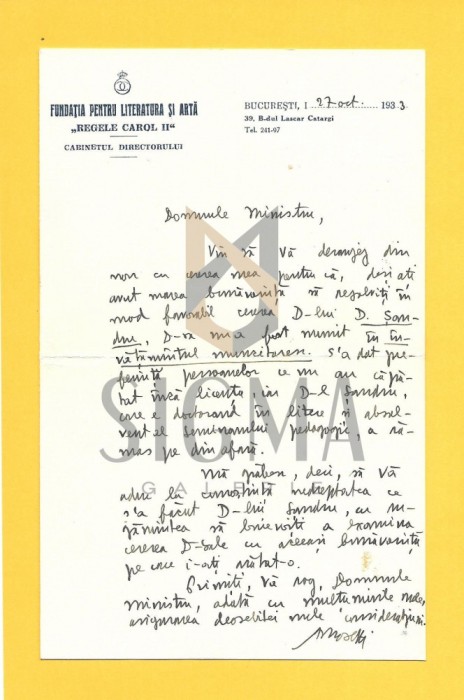 FUNDAȚIA PENTRU LITERATURA ȘI ARTĂ
„REGELE CAROL II“
CABINETUL DIRECTORULUI
BUCUREȘTI, 1 27 oct. 1933
39, B-dul Lascar Catargi
Tel. 241-97
Domnule Ministru,
Vin să Vă deranjez din
nou cu cererea mea pentru că, deși ați
avut marea bunăvoință să rezolviți în
mod favorabil cererea D-lui D. Șan-
dru, D-sa nu a fost numit în în-
vățământul muncitoresc. S'a dat pre-
ferință persoanelor ce nu au căpă-
tat încă licența, iar D-l Șandru,
care e doctorand în litere și absol-
vent al Seminarului pedagogic, a ră-
mas pe din afară.
Mă grăbesc, deci, să Vă
aduc la cunoștință nedreptatea ce
s'a făcut D-lui Șandru, cu ru-
gămintea să binevoiți a examina
cererea D-sale cu aceeași bunăvoință
pe care i-ați arătat-o.
Primiți, Vă rog, Domnule
Ministru, odată cu mulțumirile mele,
asigurarea deosebitei mele considerațiuni.
SIGMA
GALERIE